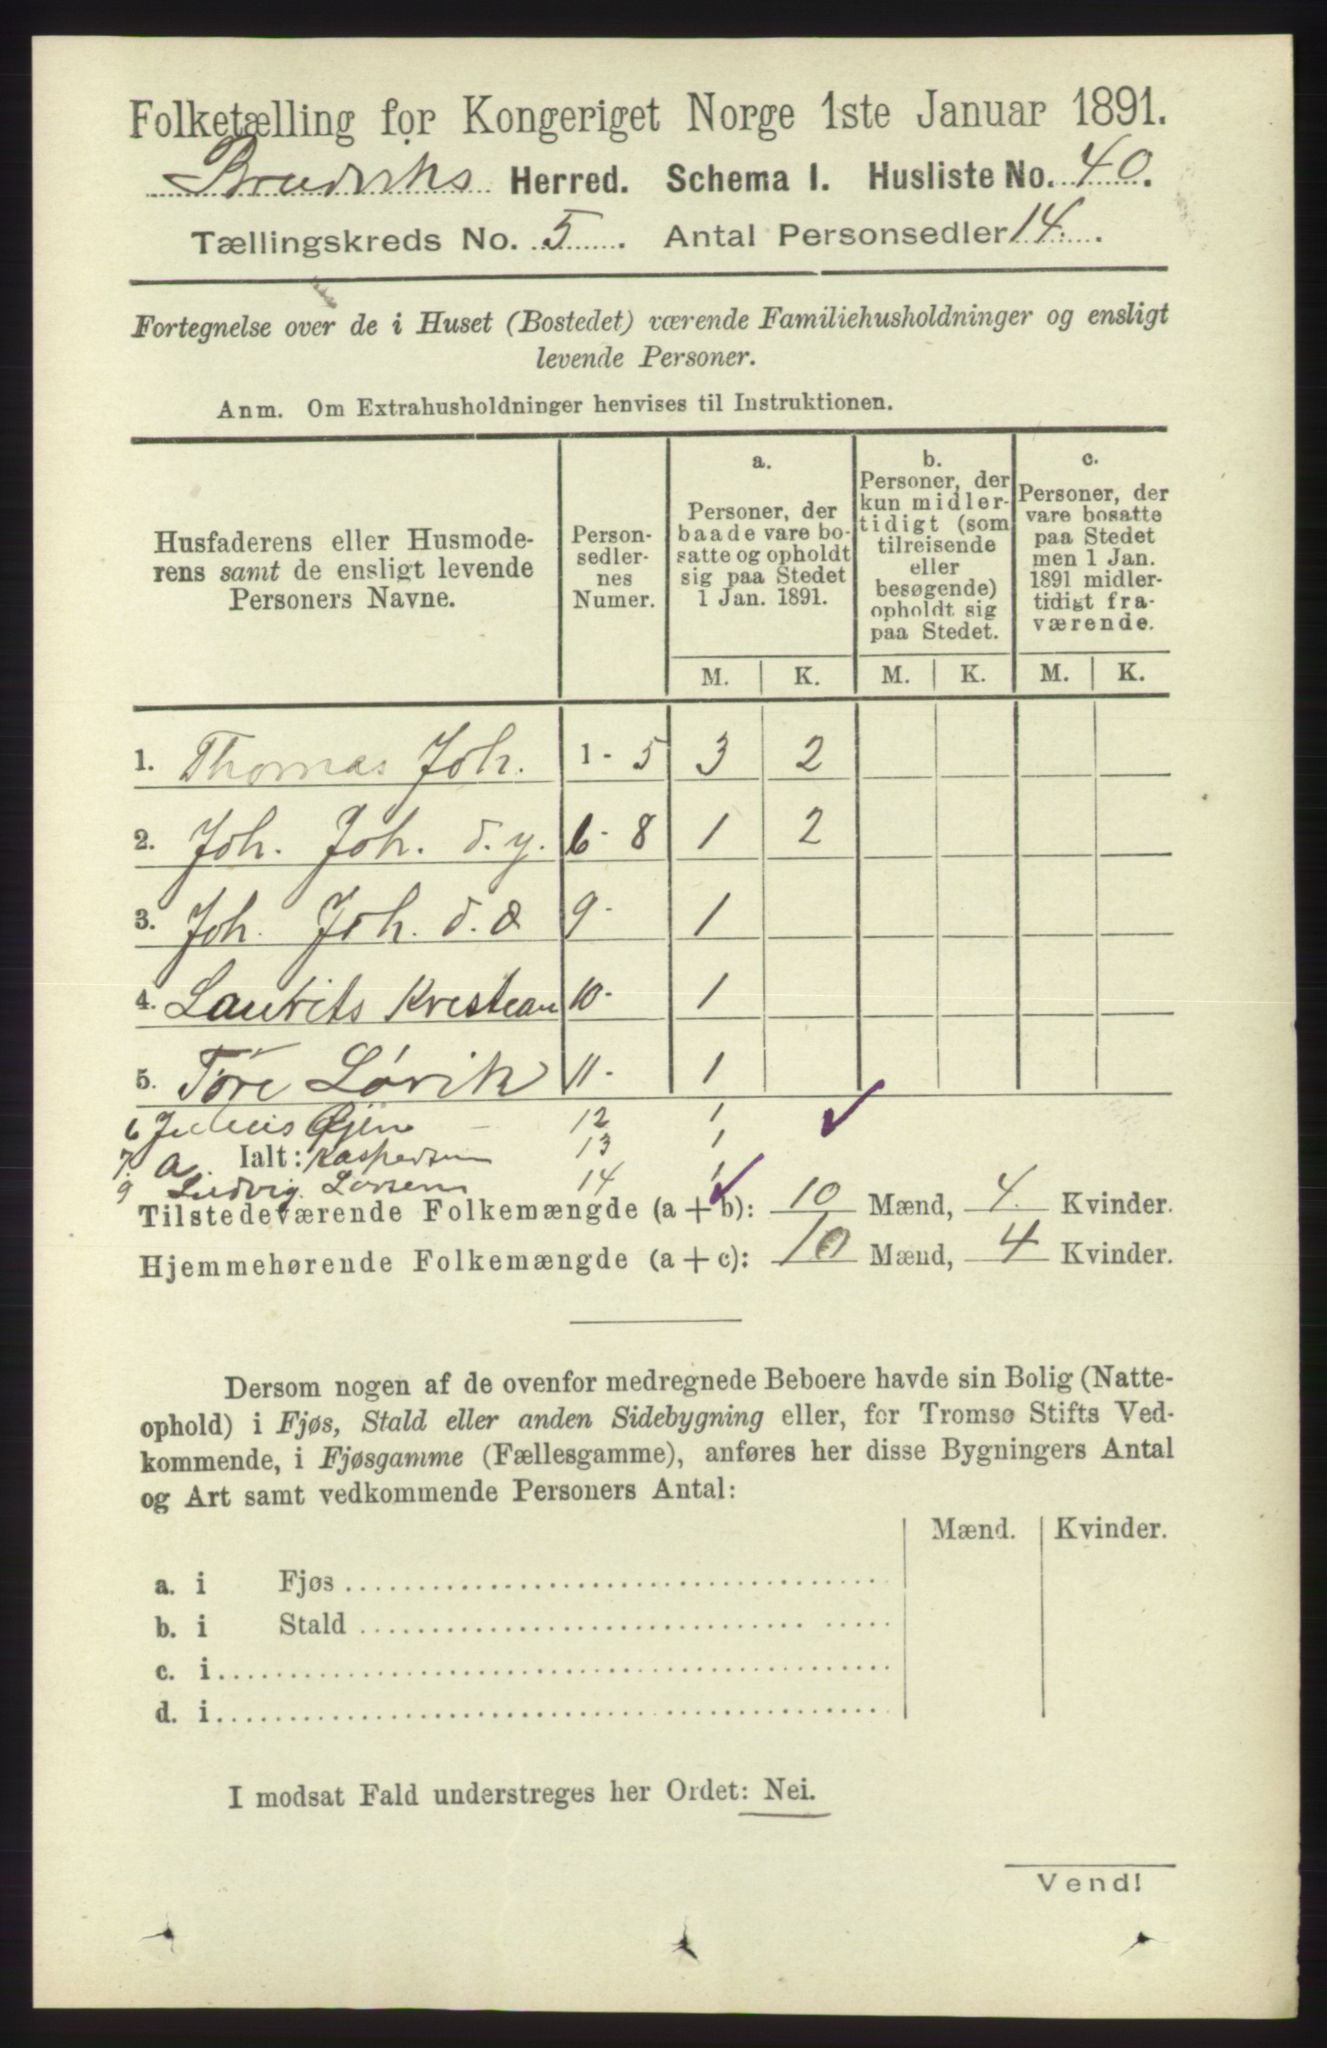 Folketælling for Kongeriget Norge 1ste Januar 1891.
Herred. Schema I. Husliste No. 40.
Tællingskreds No. 5. Antal Personsedler 14.
Fortegnelse over de i Huset (Bostedet) værende Familiehusholdninger og ensligt
levende Personer.
Anm. Om Extrahusholdninger henvises til Instruktionen.
Husfaderens eller Husmode-
rens samt de ensligt levende
Personers Navne.
Person-
sedler-
nes
Numer.
a.
Personer, der
baade vare bo-
satte og opholdt
sig paa Stedet
1 Jan. 1891.
b.
Personer, der
kun midler-
tidigt (som
tilreisende
eller
besøgende)
opholdt sig
paa Stedet.
c.
Personer, der
vare bosatte
paa Stedet
men 1 Jan.
1891 midler-
tidigt fra-
værende.
M. K. M. K. M. K.
1. Thomas Joh. 1 - 5 3 2
2. Joh. Joh. d. y. 6 - 8 1 2
3. Joh. Joh. d. æ 9 - 1
4. Laurits Kristian 10 - 1
5. Tore Løvik 11 - 1
6 Julius Øjen 12 1
7. a. Ialt: Kaspersen 13 1
9 Ludvig Larsen 14 1
Tilstedeværende Folkemængde (a + b): 10 Mænd, 4. Kvinder.
Hjemmehørende Folkemængde (a + c): 10 Mænd, 4 Kvinder.
Dersom nogen af de ovenfor medregnede Beboere havde sin Bolig (Natte-
ophold) i Fjøs, Stald eller anden Sidebygning eller, for Tromsø Stifts Ved-
kommende, i Fjøsgamme (Fællesgamme), anføres her disse Bygningers Antal
og Art samt vedkommende Personers Antal:
Mænd. Kvinder.
a. i Fjøs
b. i Stald
c. i
d. i
I modsat Fald understreges her Ordet: Nei.
Vend!